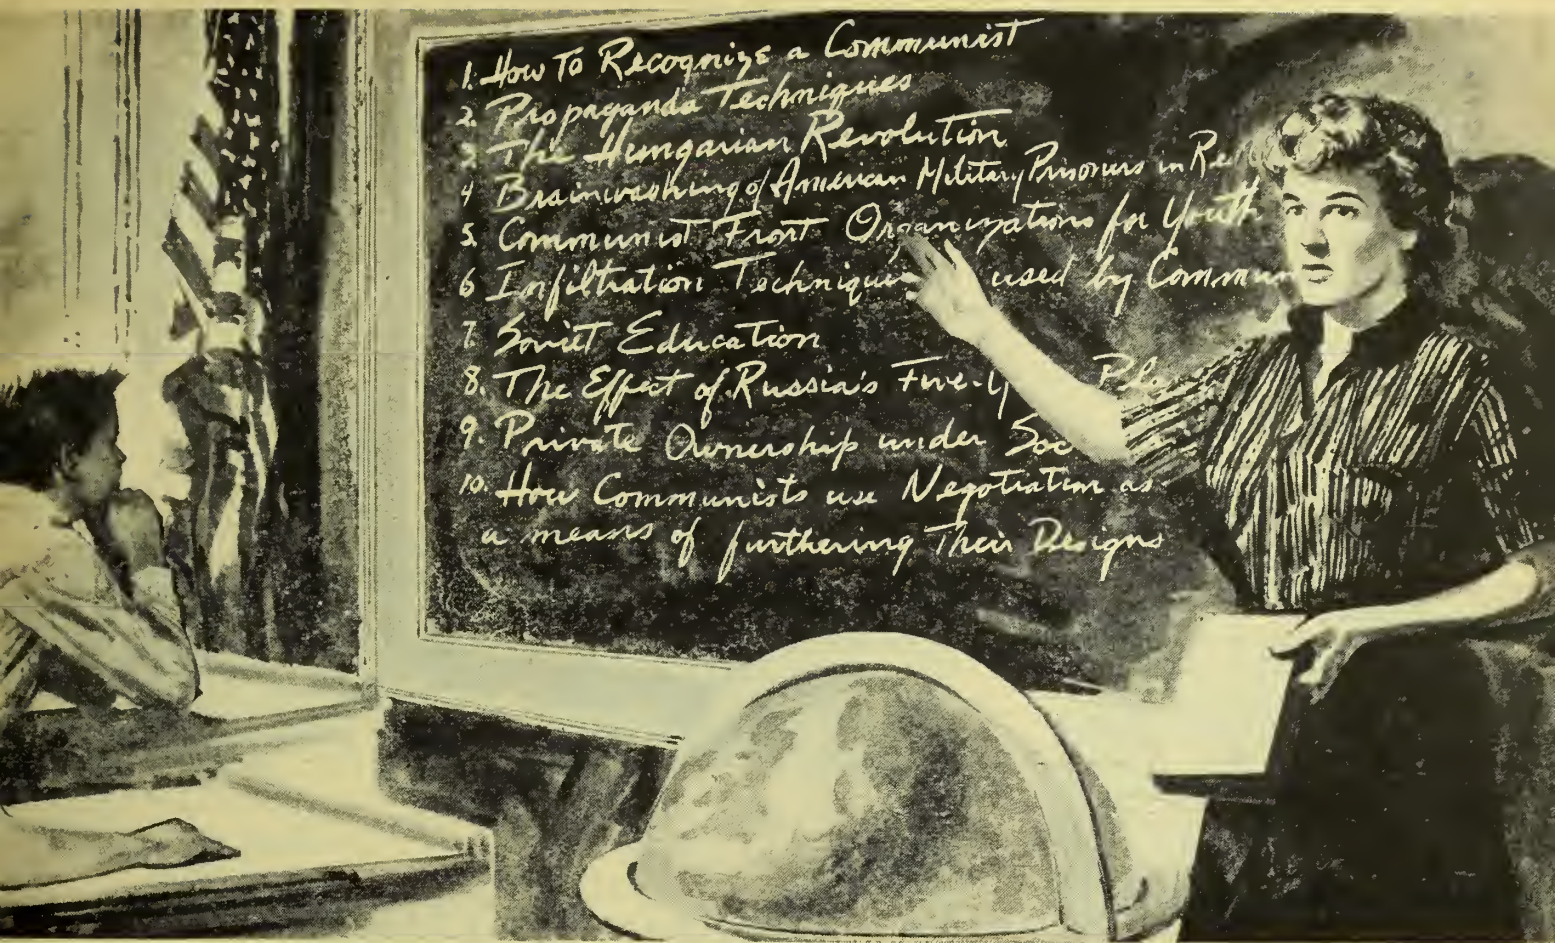 1. How To Recognize a Communist
2. Propaganda Techniques
3. The Hungarian Revolution
4 Brainwashing of American Military Prisoners in Re
5. Communist Front Organizations for Youth
6 Infiltration Techniques used by Commun
7. Soviet Education
8. The Effect of Russia's Five-Y Pla
9. Private Ownership under Soc
10. How Communists use Negotiation as
a means of furthering Their Designs